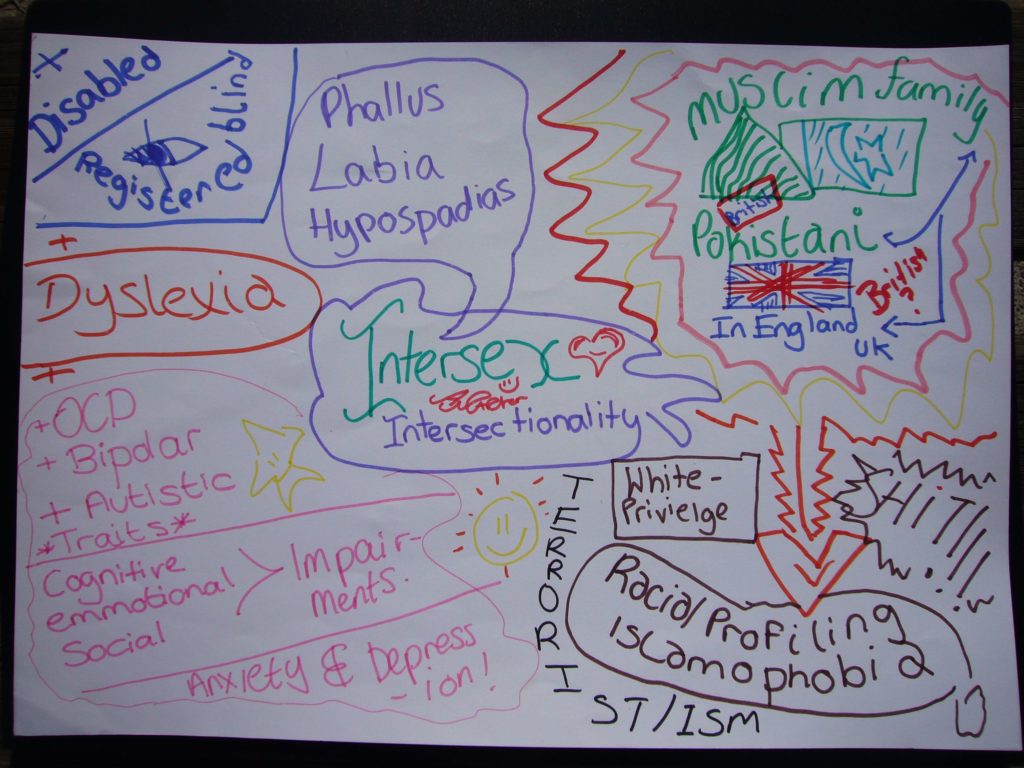 Disabled
Registered blind
+
Dyslexia
+
+OCD
+ Bipolar
+ Autistic
*Traits*
Cognitive
emmotional
Social
Impair-
ments.
Anxiety & Depress
-ion!
Phallus
Labia
Hypospadias
Intersex
Intersectionality
Muslim family
British
Pakistani
British
?
In England
UK
White-
Privielge
HiT!!!
Racial Profiling
Islamophobia
TERRORI
ST/ISM